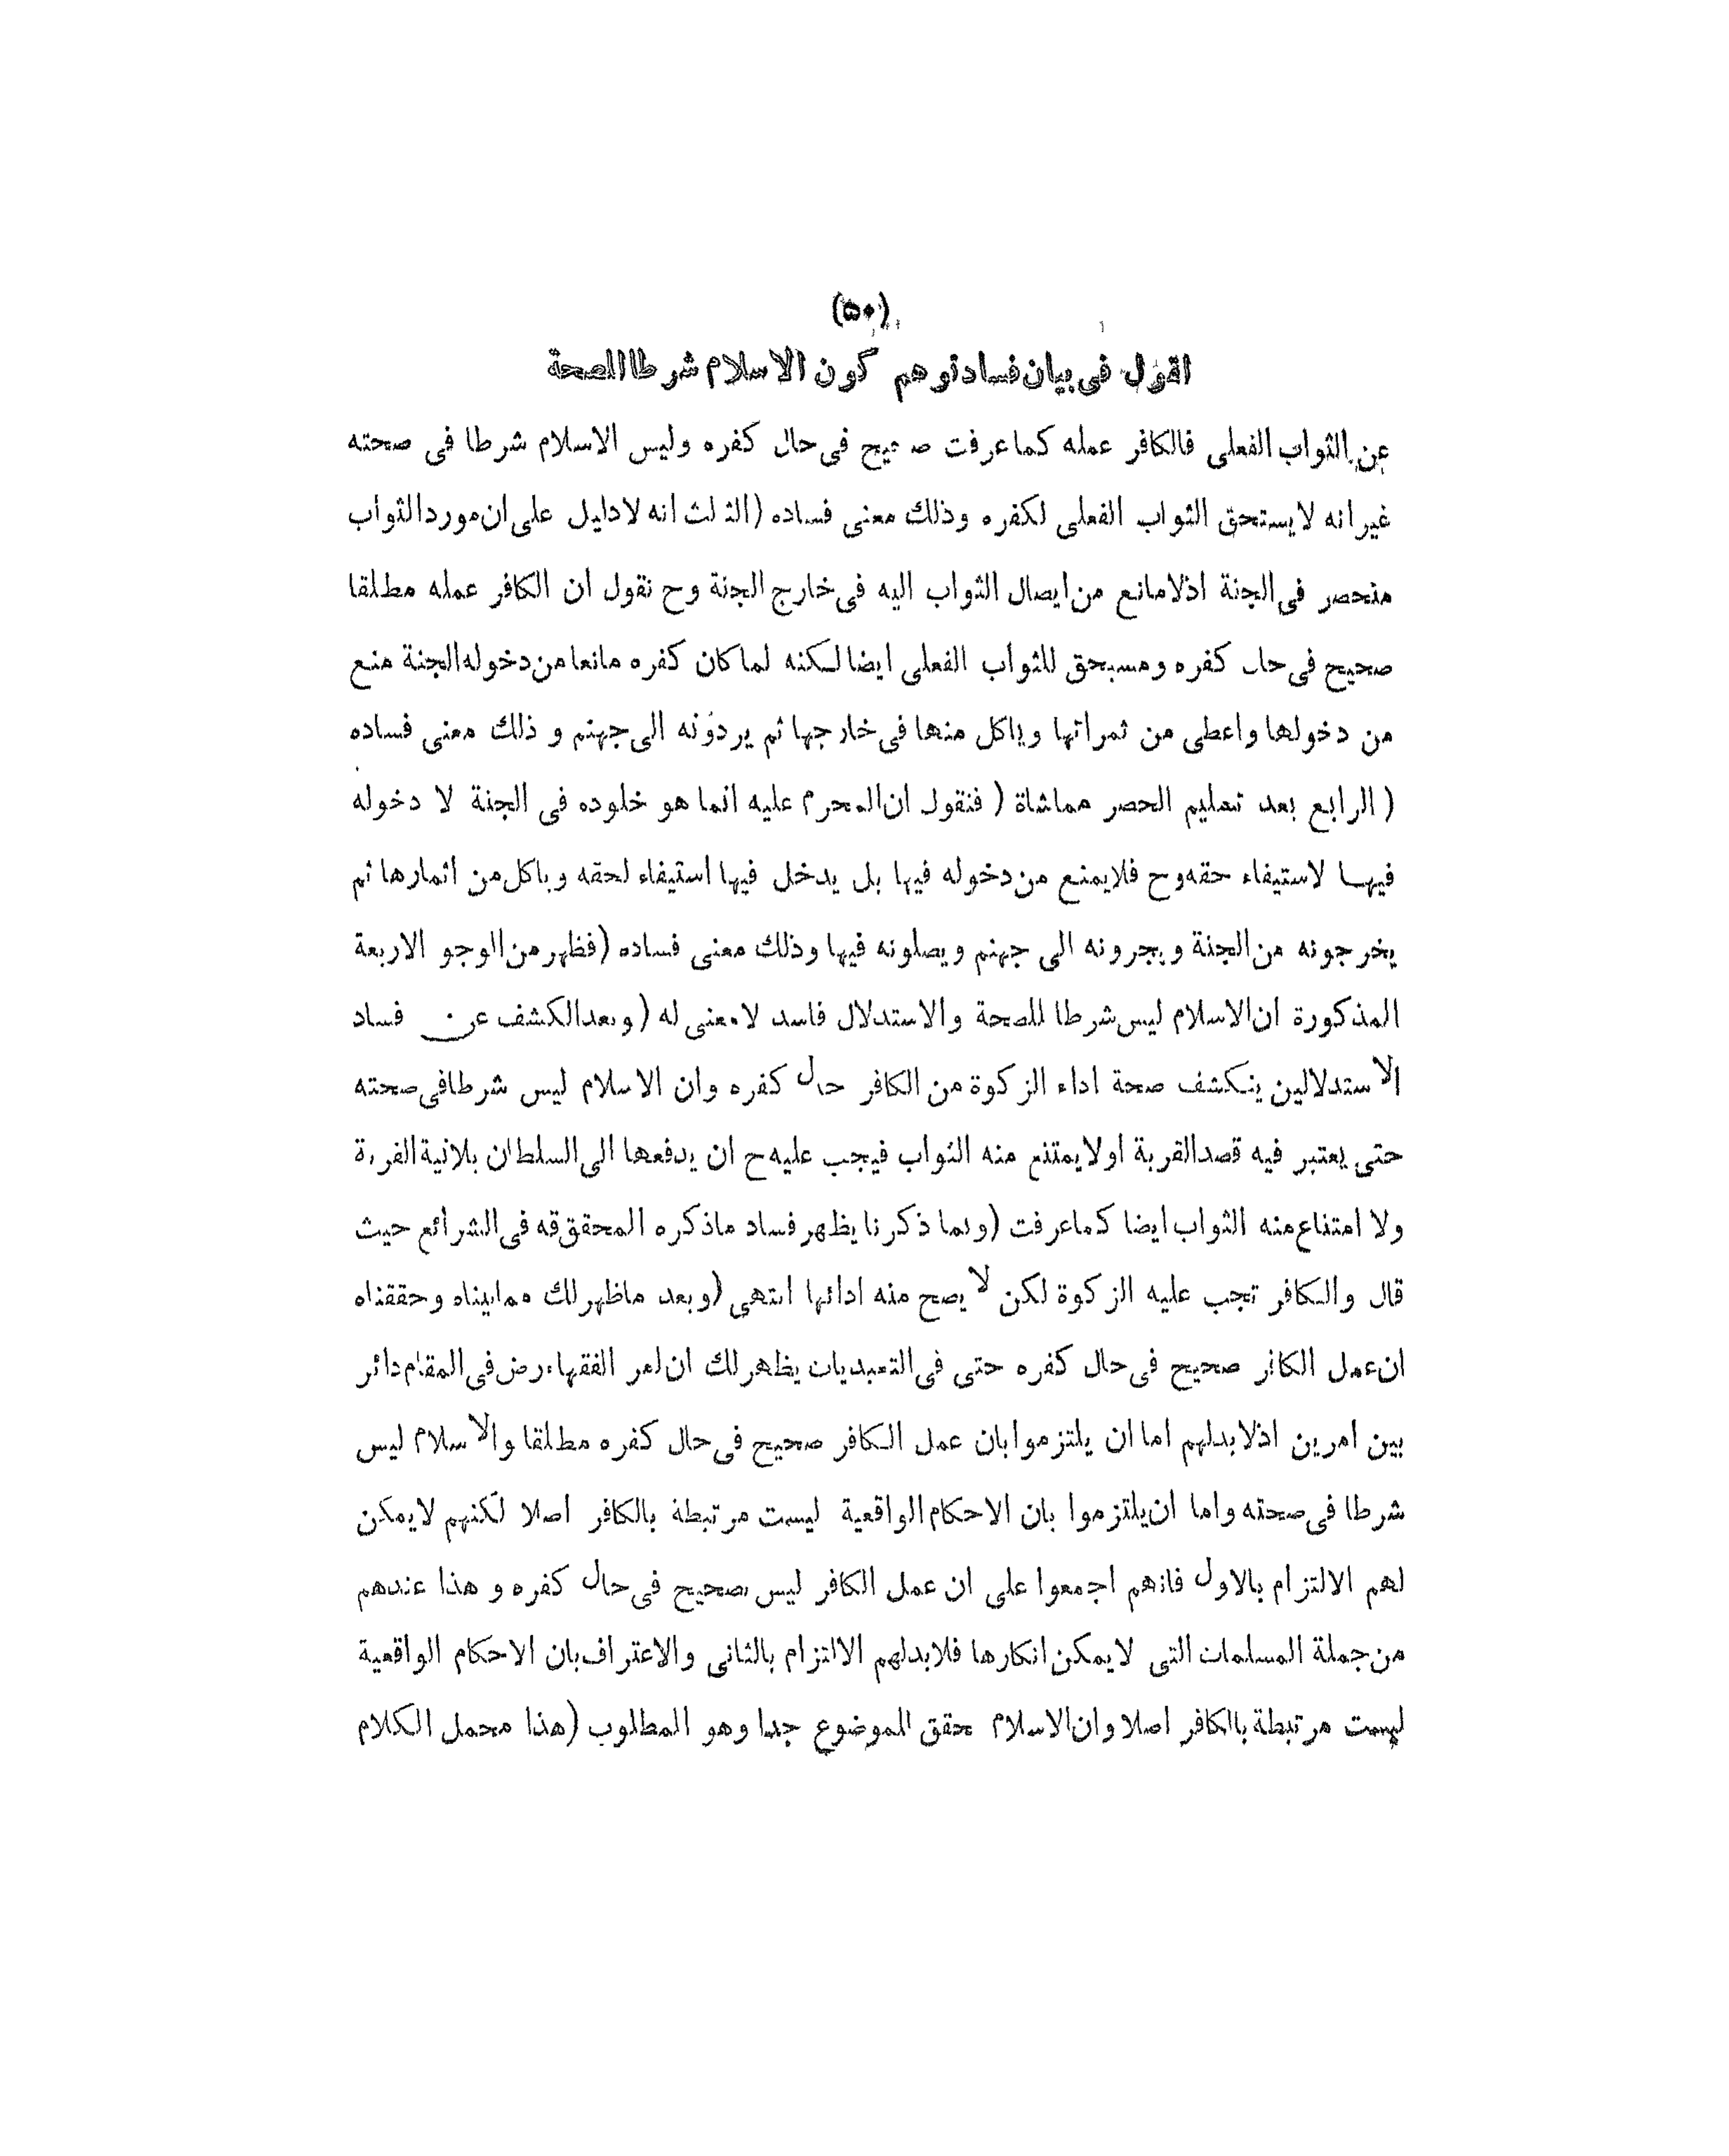 (۵۰)
اقول فی بیان فساد توهم کون الاسلام شرطا للصحة
عن الثواب الفعلی فالکافر عمله کما عرفت صحیح فی حال کفره ولیس الاسلام شرطا فی صحته
غیر انه لا یستحق الثواب الفعلی لکفره وذلك معنی فساده (الثالث انه لا دلیل علی ان مورد الثواب
منحصر فی الجنة اذ لا مانع من ایصال الثواب الیه فی خارج الجنة وح نقول ان الکافر عمله مطلقا
صحیح فی حال کفره ومستحق للثواب الفعلی ایضا لکنه لما کان کفره مانعا من دخوله الجنة منع
من دخولها واعطی من ثمراتها ویاکل منها فی خارجها ثم یردونه الی جهنم و ذلك معنی فساده
( الرابع بعد تسلیم الحصر مماشاة ( فنقول ان المحرم علیه انما هو خلوده فی الجنة لا دخوله
فیها لاستیفاء حقه وح فلا یمنع من دخوله فیها بل یدخل فیها استیفاء لحقه ویاکل من اثمارها ثم
یخرجونه من الجنة ویجرونه الی جهنم ویصلونه فیها وذلك معنی فساده (فظهر من الوجو الاربعة
المذکورة ان الاسلام لیس شرطا للصحة والاستدلال فاسد لا معنی له (وبعد الکشف عن فساد
الاستدلالین ینکشف صحة اداء الزکوة من الکافر حال کفره وان الاسلام لیس شرطا فی صحته
حتی یعتبر فیه قصد القربة او لا یمتنع منه الثواب فیجب علیه ح ان یدفعها الی السلطان بلا نیة القربة
ولا امتناع منه الثواب ایضا کما عرفت (وبما ذکرنا یظهر فساد ما ذکره المحقق قه فی الشرائع حیث
قال والکافر تجب علیه الزکوة لکن لا یصح منه ادائها انتهی (وبعد ما ظهر لك مما بیناه وحققناه
ان عمل الکافر صحیح فی حال کفره حتی فی التعبدیات یظهر لك ان امر الفقهاء رض فی المقام دائر
بین امرین اذ لا بد لهم اما ان یلتزموا بان عمل الکافر صحیح فی حال کفره مطلقا والاسلام لیس
شرطا فی صحته واما ان یلتزموا بان الاحکام الواقعیة لیست مرتبطة بالکافر اصلا لکنهم لا یمکن
لهم الالتزام بالاول فانهم اجمعوا علی ان عمل الکافر لیس بصحیح فی حال کفره و هذا عندهم
من جملة المسلمات التی لا یمکن انکارها فلا بد لهم الالتزام بالثانی والاعتراف بان الاحکام الواقعیة
لیست مرتبطة بالکافر اصلا وان الاسلام محقق للموضوع جدا وهو المطلوب (هذا مجمل الکلام